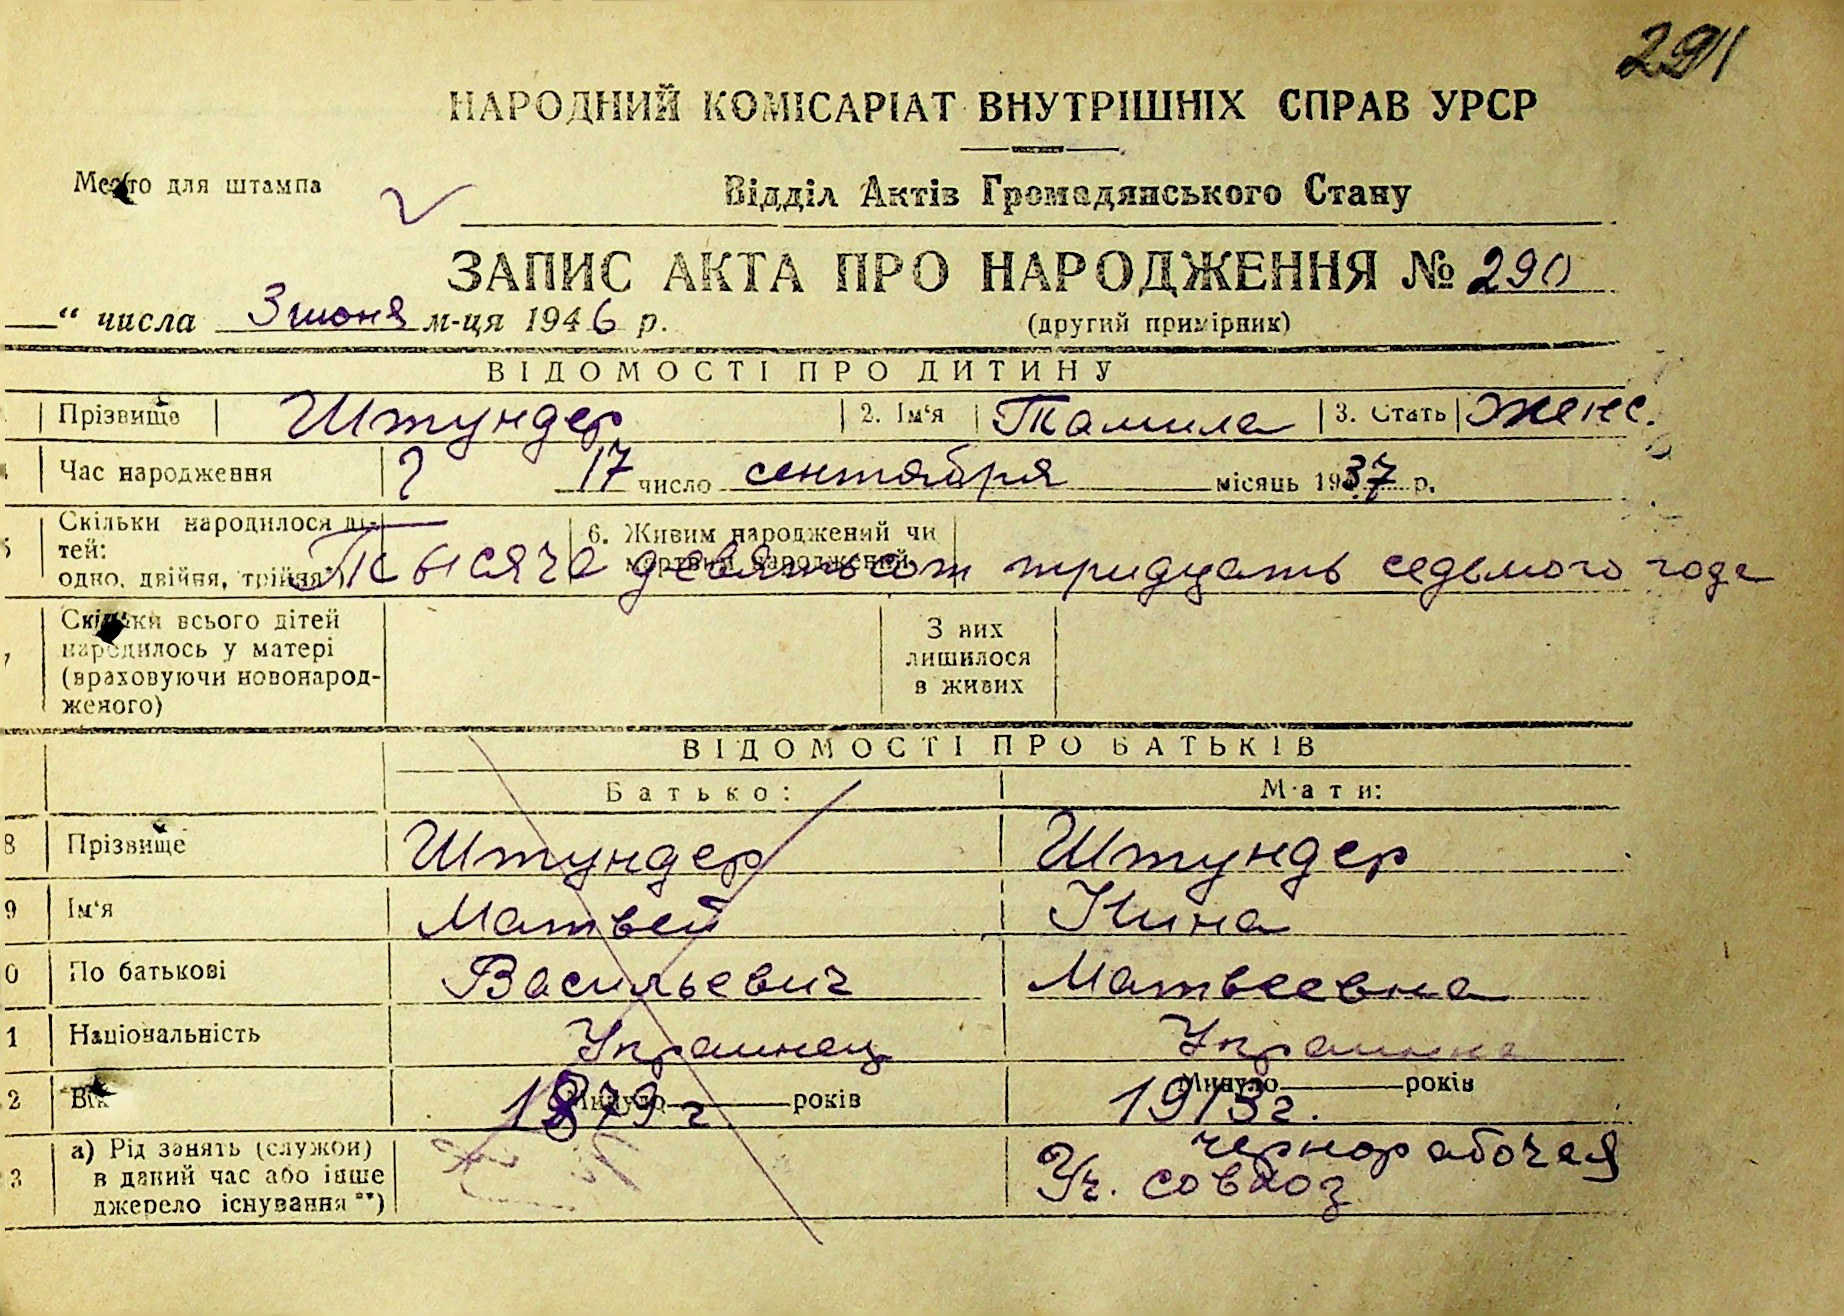 291
НАРОДНИЙ КОМІСАРІАТ ВНУТРІШНІХ СПРАВ УРСР
Место для штампа
Відділ Актів Громадянського Стану
ЗАПИС АКТА ПРО НАРОДЖЕННЯ № 290
“ числа 3 июня м-ця 1946 р. (другий примірник)
ВІДОМОСТІ ПРО ДИТИНУ
Прізвище Штундер 2. Ім‘я Тамила 3. Стать женс.
Час народження 17 число сентября місяць 1937 р.
5 Скільки народилося дітей: одно, двійня, трійня*) 6. Живим народжений чи мертвим народжений
Тысяча девятьсот тридцать седьмого года
7 Скільки всього дітей народилось у матері (враховуючи новонародженого) З них лишилося в живих
ВІДОМОСТІ ПРО БАТЬКІВ
Батько: Мати:
8 Прізвище Штундер Штундер
9 Ім‘я Матвей Нина
0 По батькові Васильевич Матвеевна
1 Національність Украинец Украинка
2 Вік Минуло 1879 г років Минуло 1913 г. років
3 а) Рід занять (служби) в даний час або інше джерело існування**) чернорабочая
Уч. совхоз